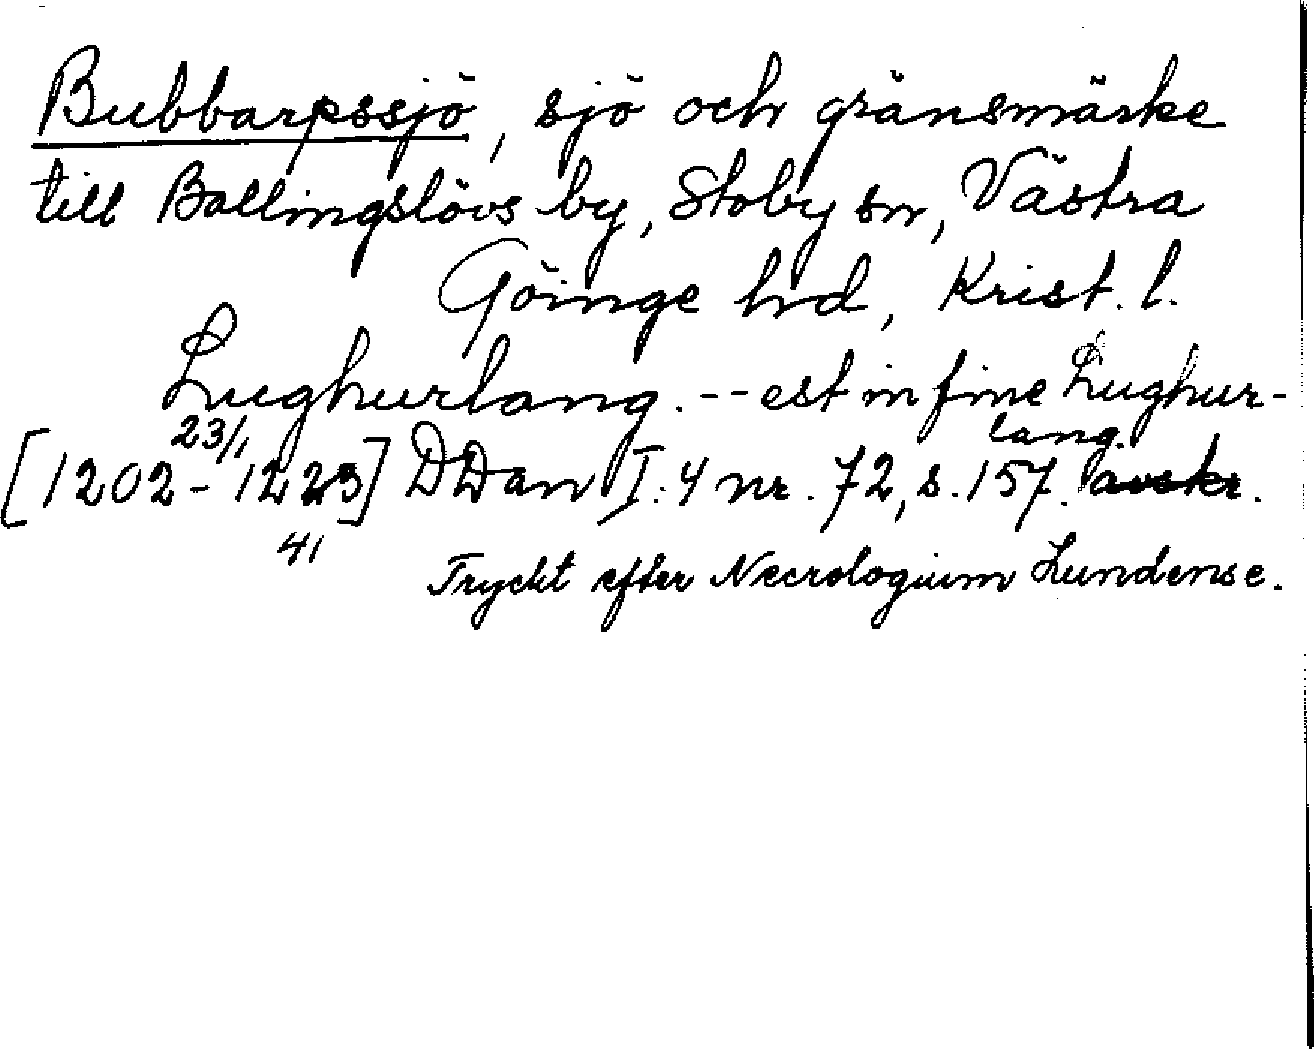 Bubbarpssjö, sjö och gränsmärke
till Ballingslövs by, Stoby sn, Västra
Göinge hrd, Krist. l.
Lughurlang. -- est in fine Lughur-
lang.
23/1
[1202-1223] DDan I:4 nr. 72, s. 157. avskr.
41
Tryckt efter Necrologium Lundense.